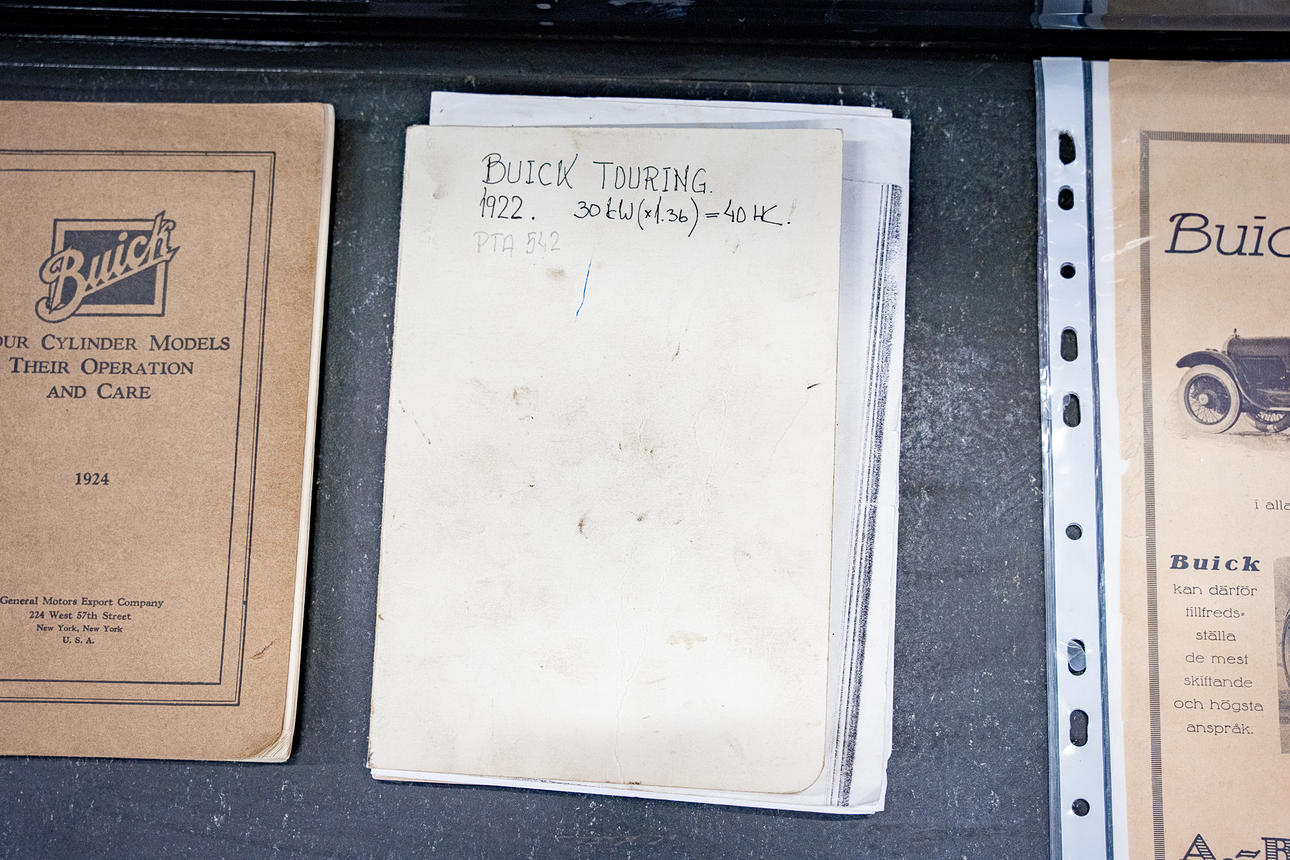 Buick
OUR CYLINDER MODELS
THEIR OPERATION
AND CARE
1924
General Motors Export Company
224 West 57th Street
New York, New York
U. S. A.
BUICK TOURING.
1922. 30 kW (×1.36) = 40 HK.
PTA 542
Buic
i alla
Buick
kan därför
tillfreds-
ställa
de mest
skiftande
och högsta
anspråk.